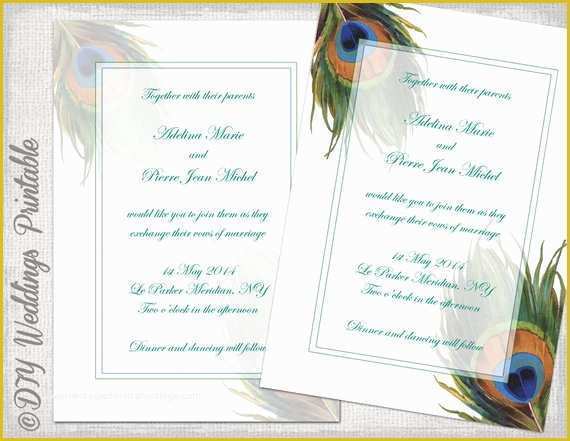 ©DIY Weddings Printable
Together with their parents
Adelina Marie
and
Pierre Jean Michel
would like you to join them as they
exchange their vows of marriage
1st May 2014
Le Parker Meridian, NY
Two o'clock in the afternoon
Dinner and dancing will follow
Together with their parents
Adelina Marie
and
Pierre Jean Michel
would like you to join them as they
exchange their vows of marriage
1st May 2014
Le Parker Meridian, NY
Two o'clock in the afternoon
Dinner and dancing will follow